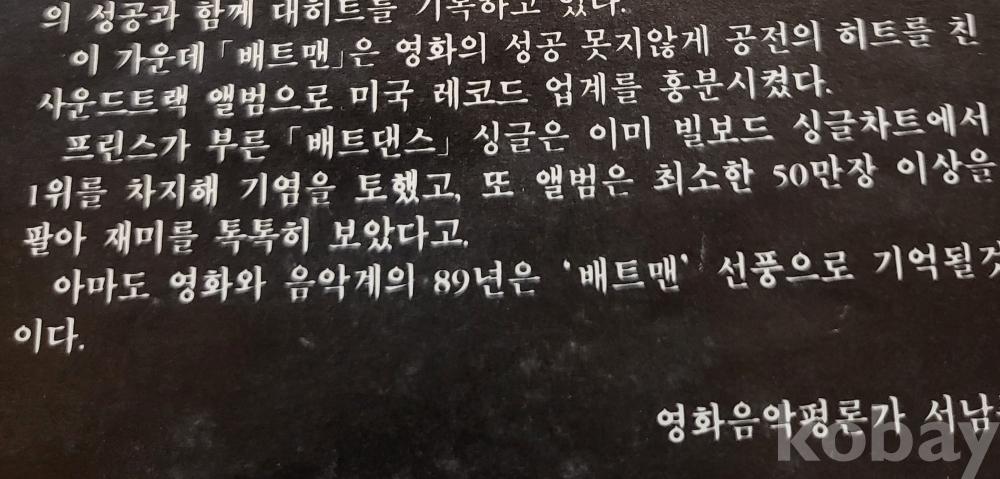 의 성공과 함께 대히트를 기록하고 있다.
이 가운데 「배트맨」은 영화의 성공 못지않게 공전의 히트를 친
사운드트랙 앨범으로 미국 레코드 업계를 흥분시켰다.
프린스가 부른 「배트댄스」 싱글은 이미 빌보드 싱글차트에서
1위를 차지해 기염을 토했고, 또 앨범은 최소한 50만장 이상을
팔아 재미를 톡톡히 보았다고.
아마도 영화와 음악계의 89년은 '배트맨' 선풍으로 기억될것
이다.
영화음악평론가 서남
kobay